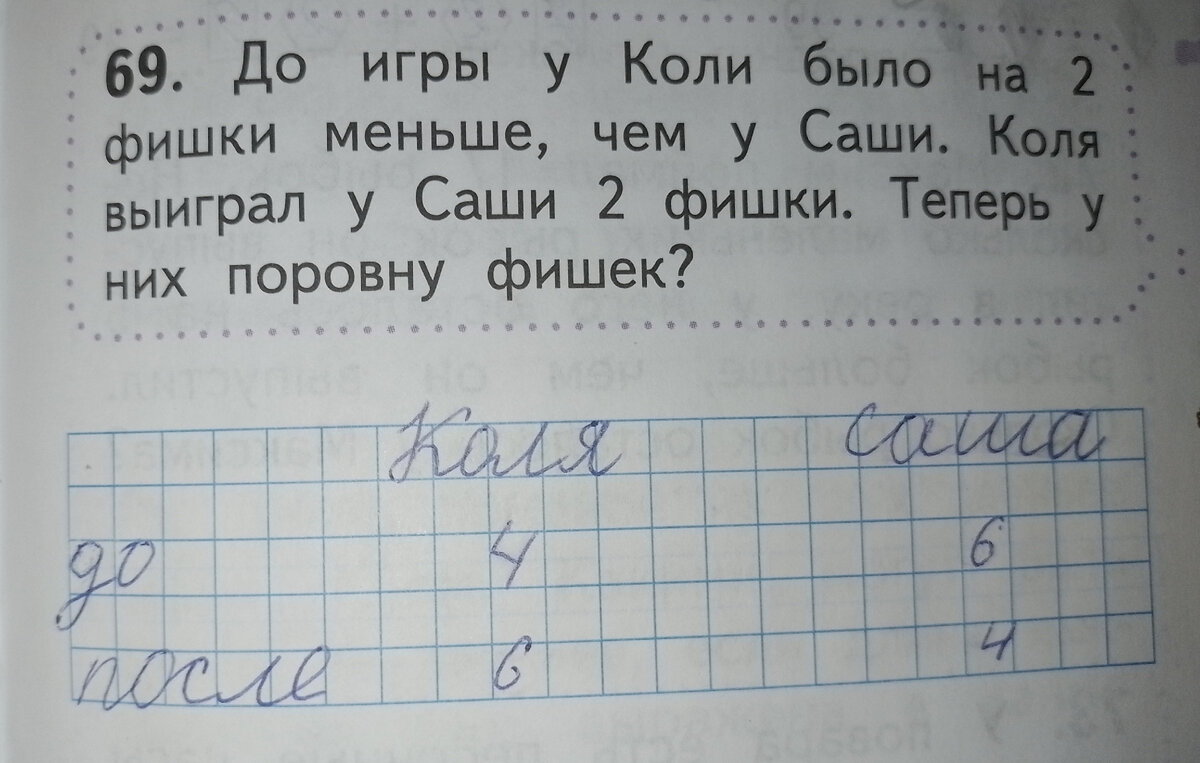 69. До игры у Коли было на 2
фишки меньше, чем у Саши. Коля
выиграл у Саши 2 фишки. Теперь у
них поровну фишек?
Коля Саша
до 4 6
после 6 4